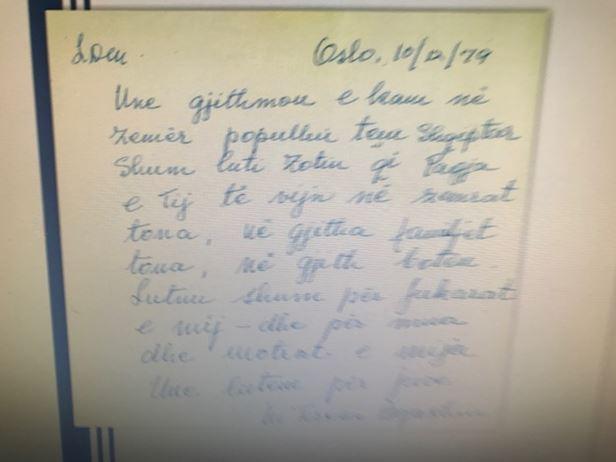 LDM. Oslo, 10/12/79
Une gjithmon e kam në
zemër popullin tem Shqiptar
Shum luti Zotin që Paqja
e Tij të vejn në zemrat
tona, në gjitha familjet
tona, në gjith boten.
Lutni shum për fukarat
e mij - dhe për mua
dhe motrat e mija
Une lutem për juve